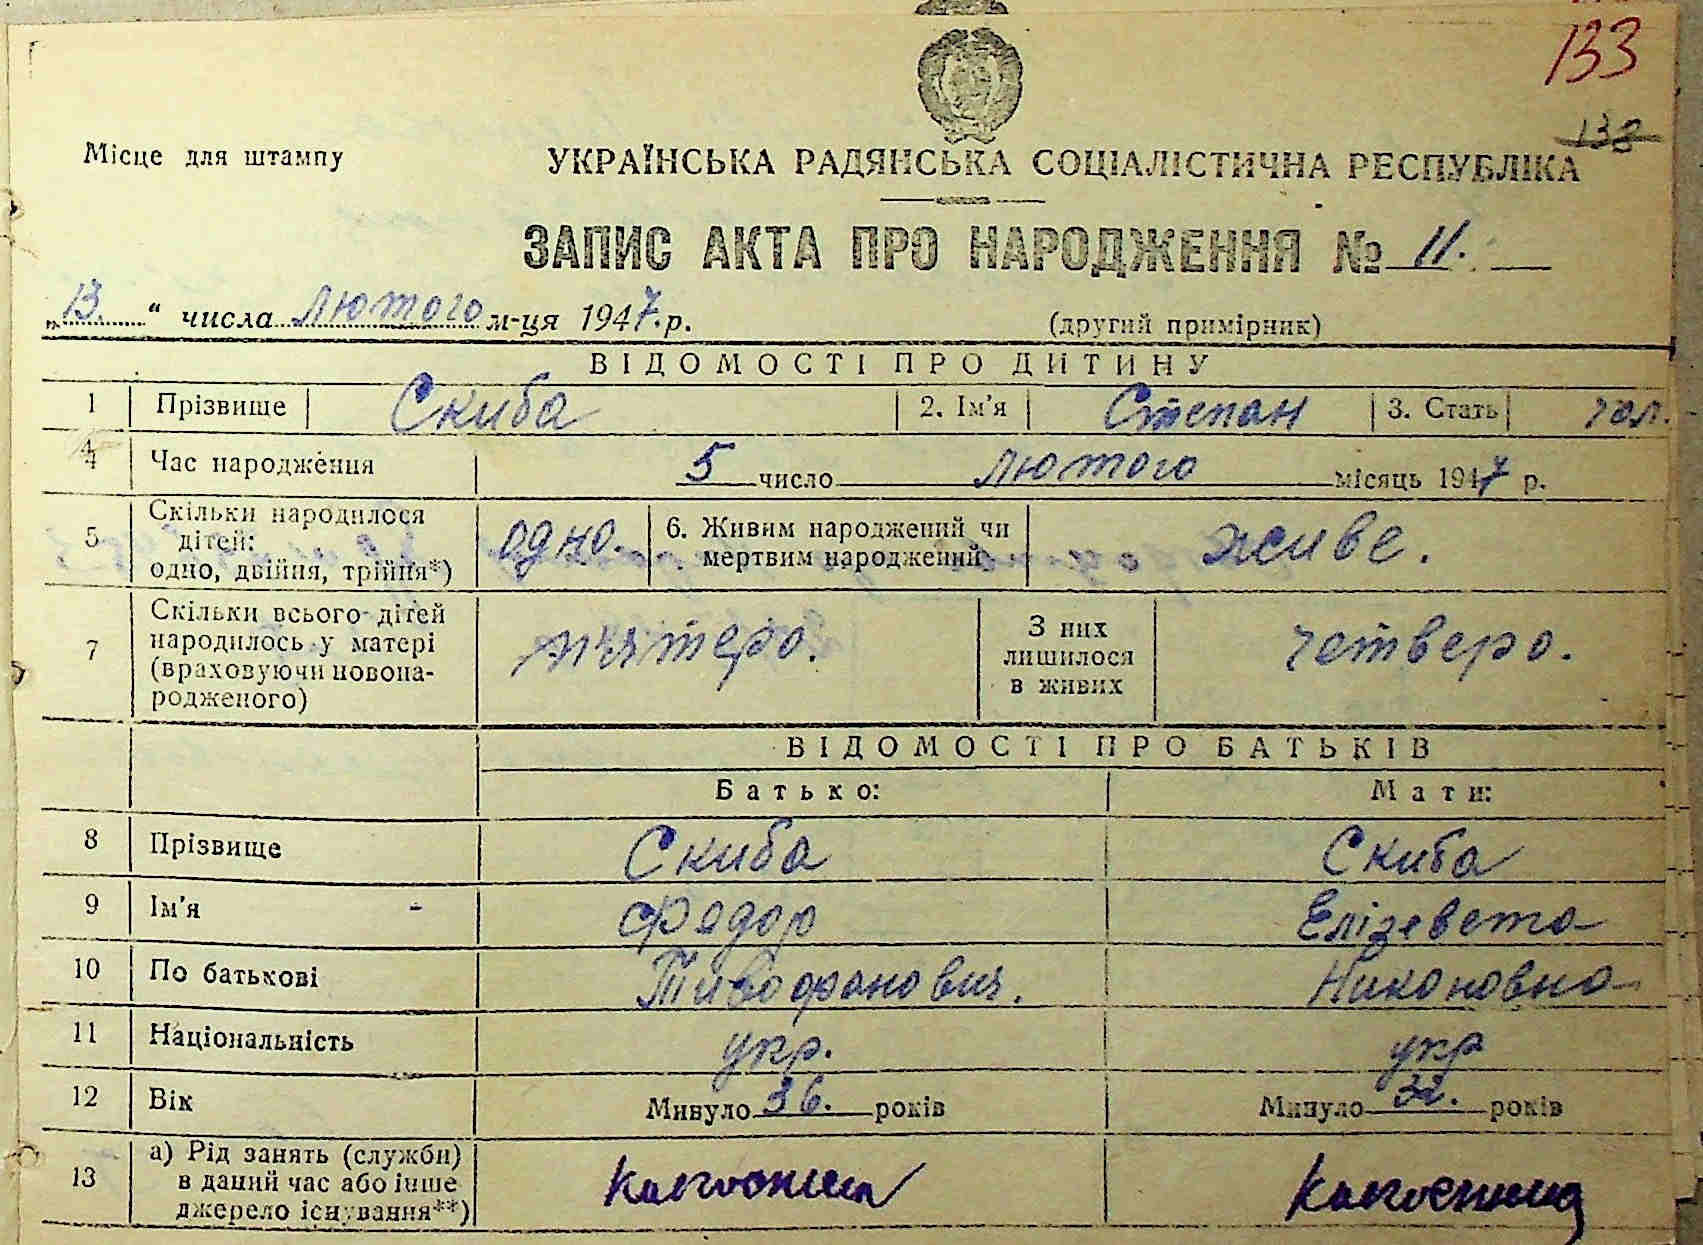 133
138
Місце для штампу
УКРАЇНСЬКА РАДЯНСЬКА СОЦІАЛІСТИЧНА РЕСПУБЛІКА
ЗАПИС АКТА ПРО НАРОДЖЕННЯ № 11.
„13.“ числа лютого м-ця 1947.р.
(другий примірник)
ВІДОМОСТІ ПРО ДИТИНУ
1 Прізвище Скиба 2. Ім'я Степан 3. Стать чол.
4 Час народження 5 число лютого місяць 1947 р.
5 Скільки народилося
дітей:
одно, двійня, трійня*) одно. 6. Живим народжений чи
мертвим народжений живе.
7 Скільки всього дітей
народилось у матері
(враховуючи новона-
родженого) пятеро. З них
лишилося
в живих четверо.
ВІДОМОСТІ ПРО БАТЬКІВ
Батько: Мати:
8 Прізвище Скиба Скиба
9 Ім'я Федор Елізевета
10 По батькові Никоновна
11 Національність укр. укр
12 Вік Минуло 36. років Минуло 32. років
13 а) Рід занять (служби)
в даний час або інше
джерело існування**) Колгоспник Колгоспниця